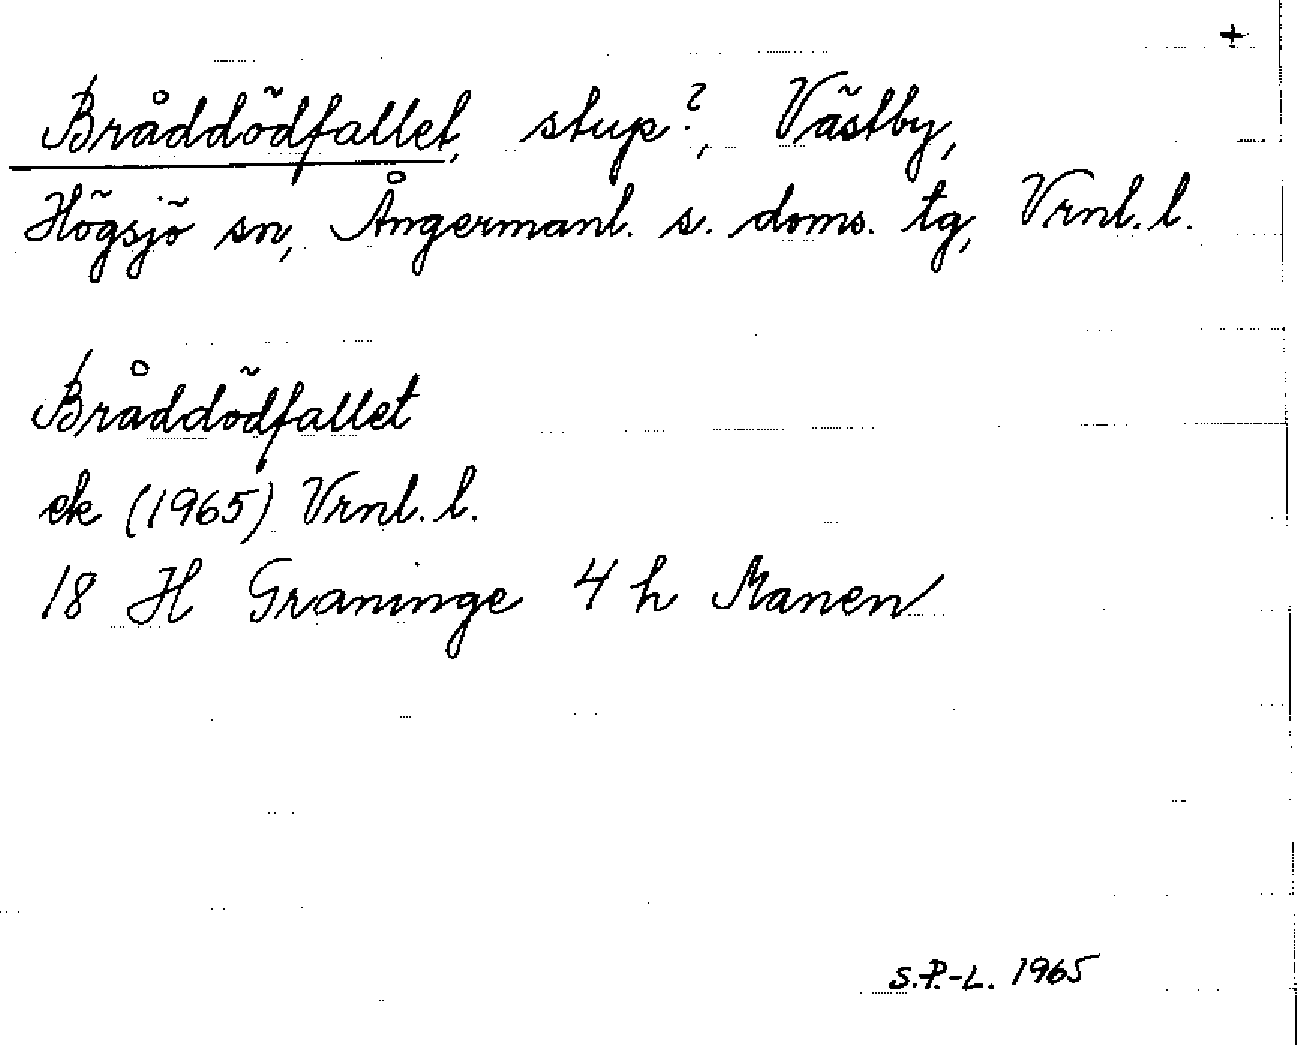 +
Bråddödfallet, stup?, Västby,
Högsjö sn, Ångermanl. s. doms. tg, Vrnl. l.
Bråddödfallet
ek (1965) Vrnl. l.
18 H Graninge 4 h Manen
S.P.-L. 1965